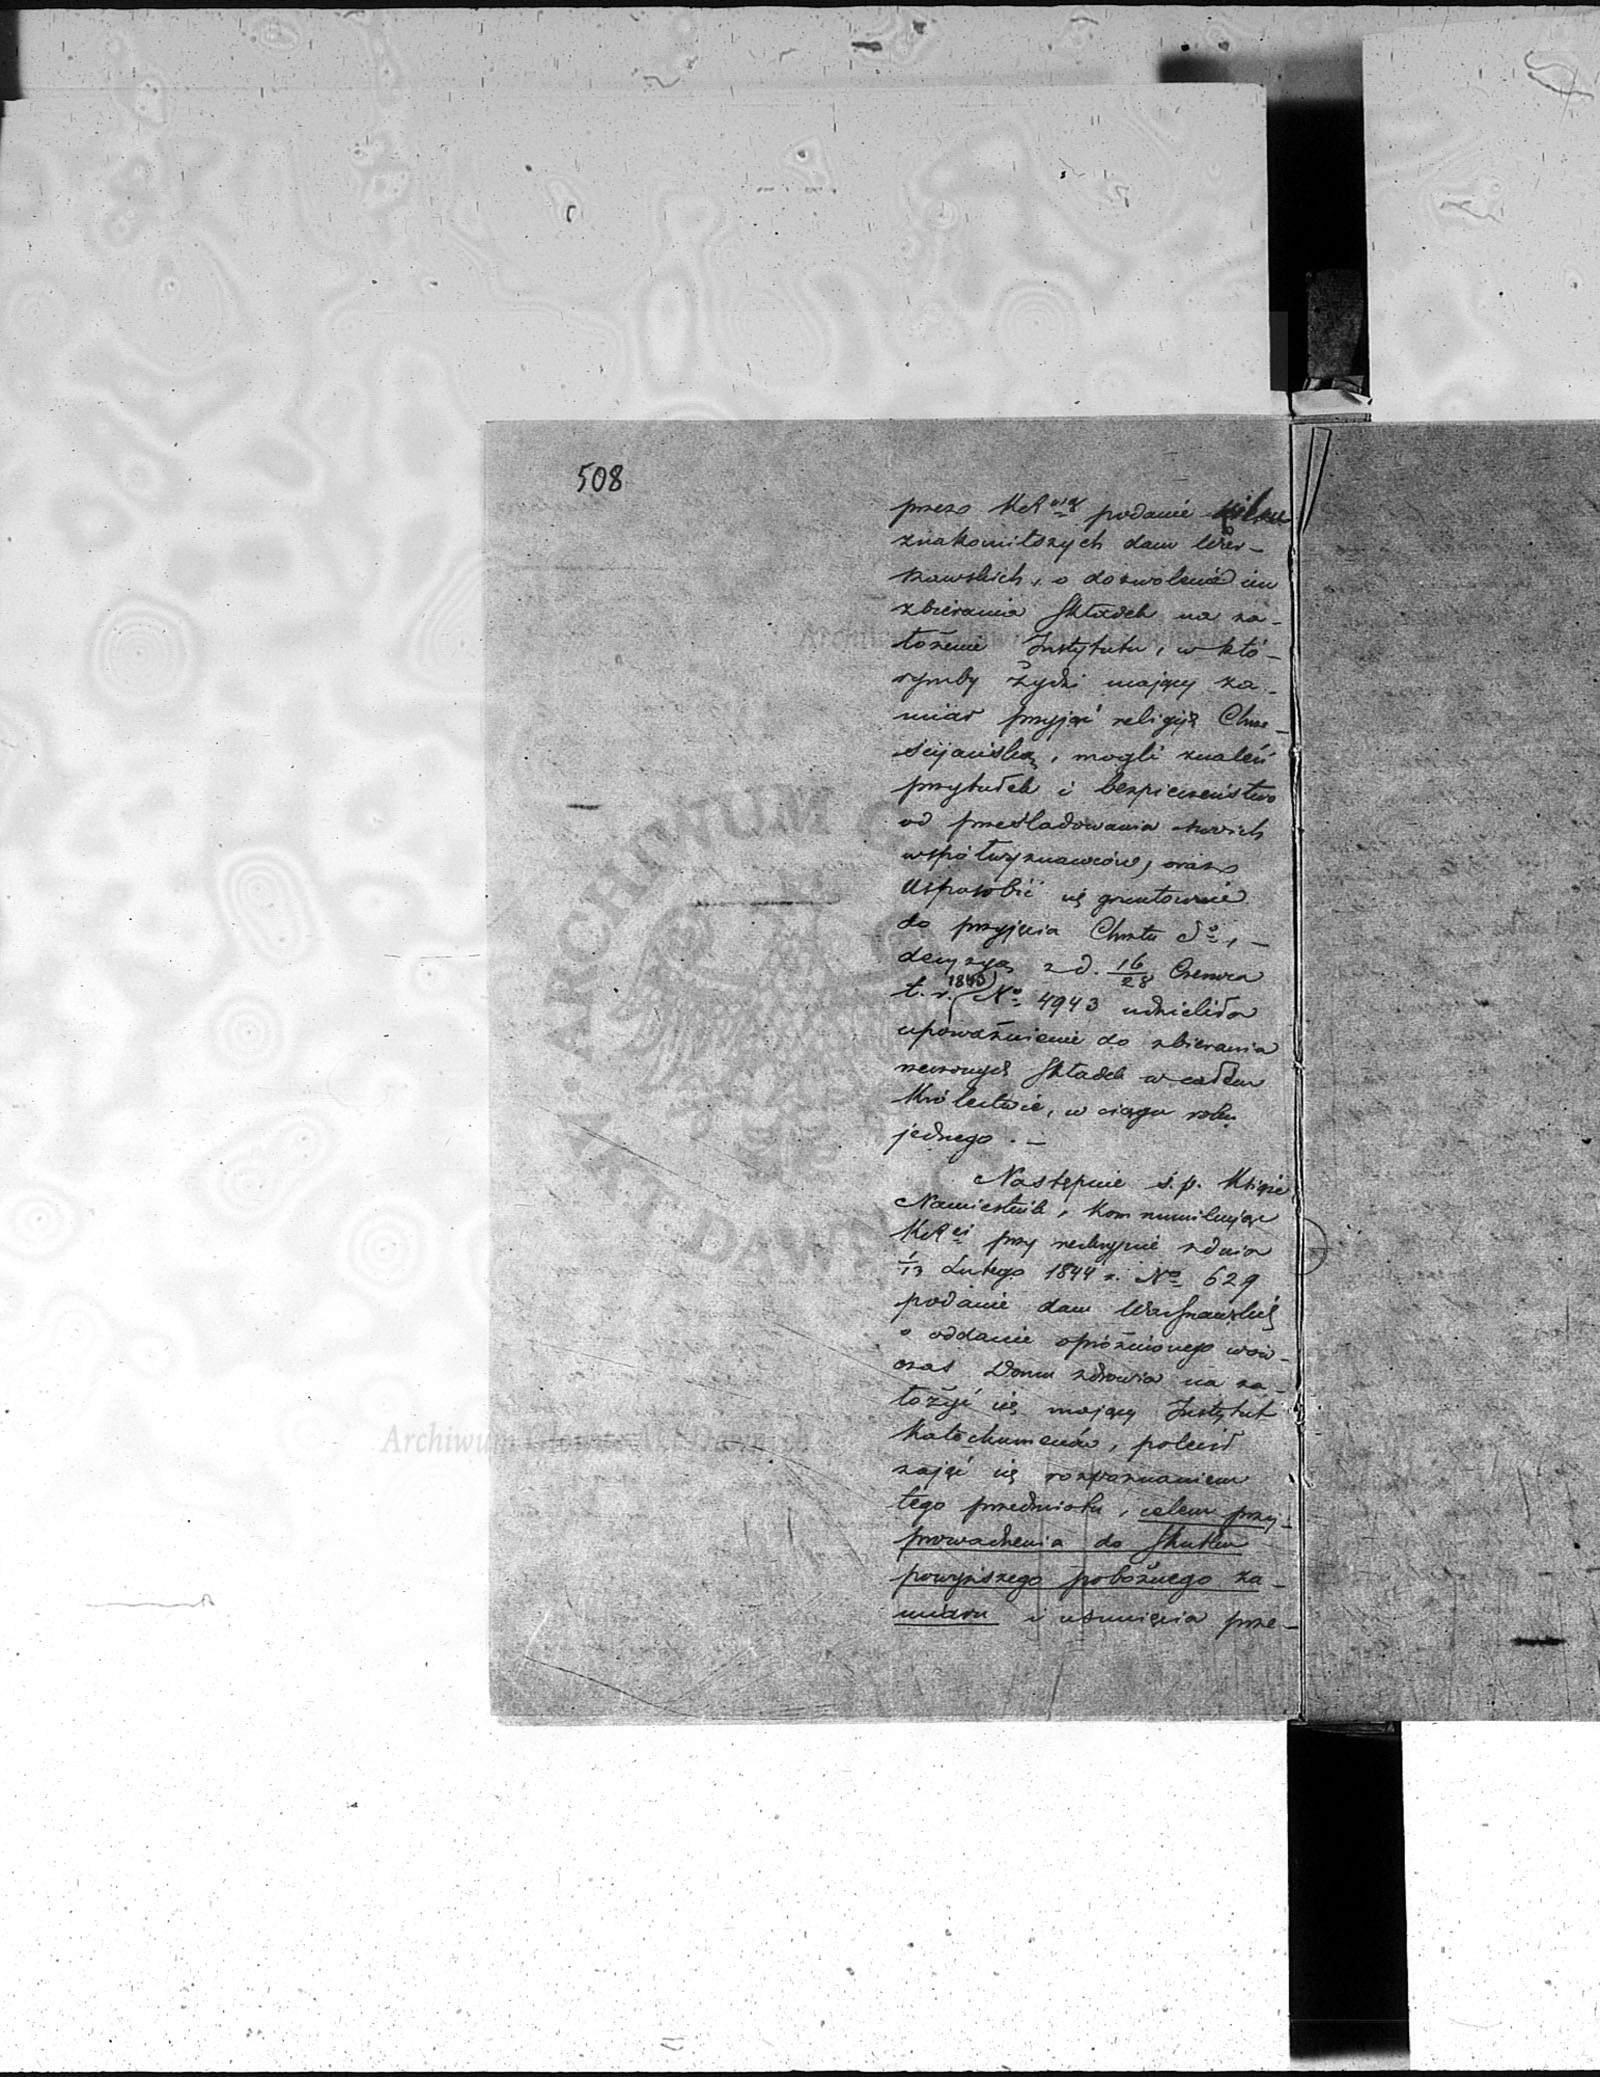 508
przez KR podanie kilku
znakomitszych dam War-
szawskich, o dozwolenie im
zbierania Składek na za-
łożenie Instytutu, w któ-
rymby Żydzi mający za-
miar przyjąć religiją Chrze-
ścijańską, mogli znaleść
przytułek i bezpieczeństwo
od prześladowania swoich
współwyznawców, oraz
Usposobić się gruntownie
do przyjęcia Chrztu So, —
decyzyą z d. 16/28 Czerwca
t. r. (1843) No 4943 udzieliła
upoważnienie do zbierania
rzeczonych Składek w całem
Królestwie, w ciągu roku
jednego. —
Następnie ś. p. Książe
Namiestnik, kommunikując
KRei przy reskrypcie z dnia
1/13 Lutego 1844 r. No 629
podanie dam Warszawskich
o oddanie opróżnionego wów-
czas Domu zdrowia na za-
łożyć się mający Instytut
Katechumenów, polecił
zająć się rozpoznaniem
tego przedmiotu, celem przy-
prowadzenia do Skutku
powyższego pobożnego za-
miaru i usunięcia prze-
ARCHIWUM G
AKT DAWNYCH
Archiwum Główne Akt Dawnych